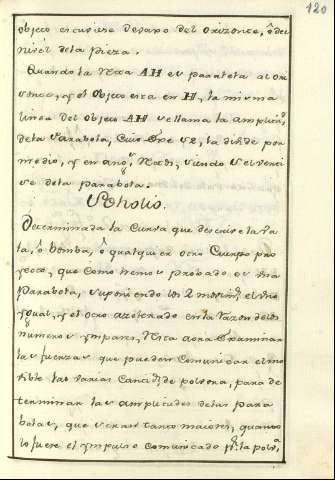 120
objeto estuviere devaxo del Orizonte, ô del
nivel de la Pieza.
Quando la Recta AH es paralela al Ori
zonte, y el Objeto esta en H, la misma
linea del objeto AH se llama la amplitud,
de la Parabola, cuio Exe la divide por
medio, y en angs. Rects, siendo el verti
ce de la parabola.
Scholio.
Determinada la Curva que descrive la Va
la, ô bomba, ô qualquier otro Cuerpo pro
yecto, que como hemos probado es una
Parabola, suponiendo los 2 movim.s el uno
ygual, y el otro azelerado en la razon de los
numeros ympares, Resta aora Examinar
las fuerzas que puedan Comunicar al mo
bible las varias Cantid.s de polvora, para de
terminar las amplitudes de las Para
bolas, que seran tanto maiores, quando
lo fuere el ympulso comunicado p.r la polv.a